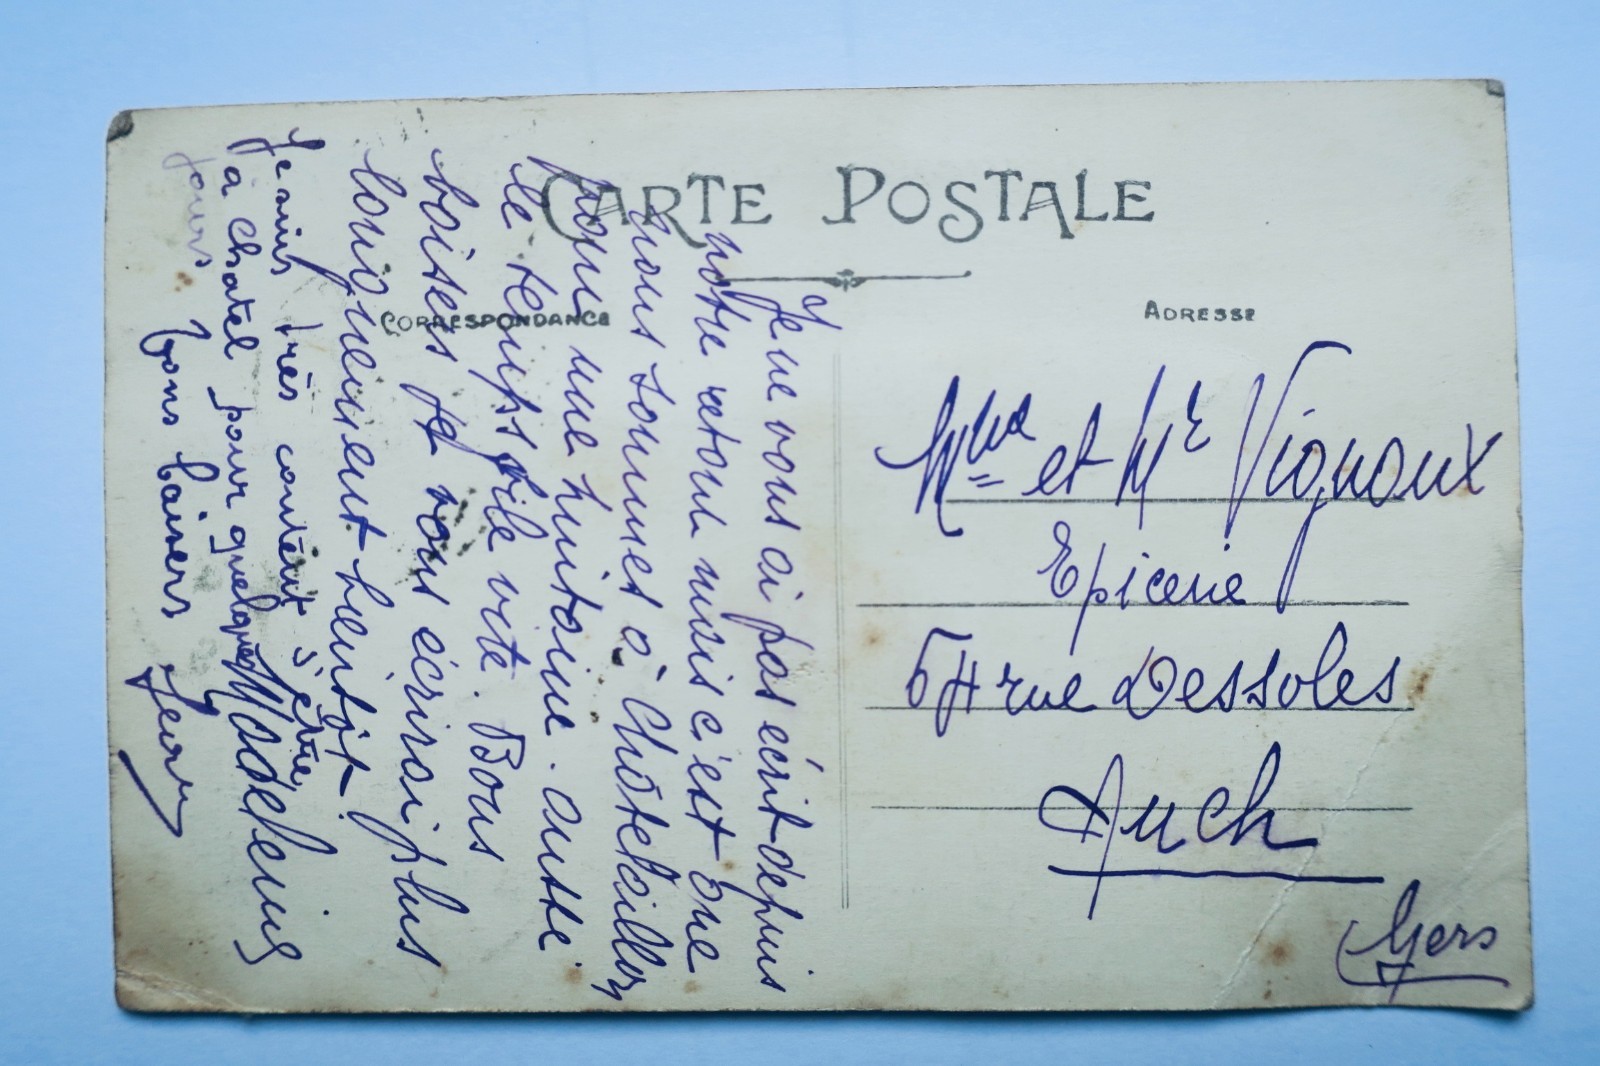 CARTE POSTALE
CORRESPONDANCE
ADRESSE
Je ne vous ai pas écrit depuis
notre retour mais c'est que
nous sommes à Châtelaillon
pour une huitaine. aussi
le temps file vite. Bons
baisers je vous écrirai plus
longuement bientôt.
Madeleine
Je suis très content d'être
à Chatel pour quelques
jours
Bons baisers Jean
Mme et Mr Vignaux
Epicerie
54 rue Dessoles
Auch
Gers